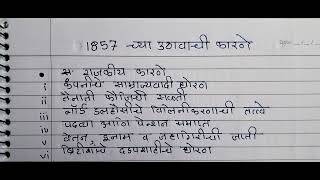 1857 -च्या उठावाची कारणे
अ. राजकीय कारणे
i कंपनीचे साम्राज्यवादी धोरण
ii तैनाती फौजेची सक्ती
iii लॉर्ड डलहौसीचे विलिनीकरणाची तत्वे
iv पदव्या आणि पेन्शन समाप्त
v वेतन, इनाम व जहागिरीची जप्ती
vi ब्रिटिशांचे दडपशाहीचे धोरण